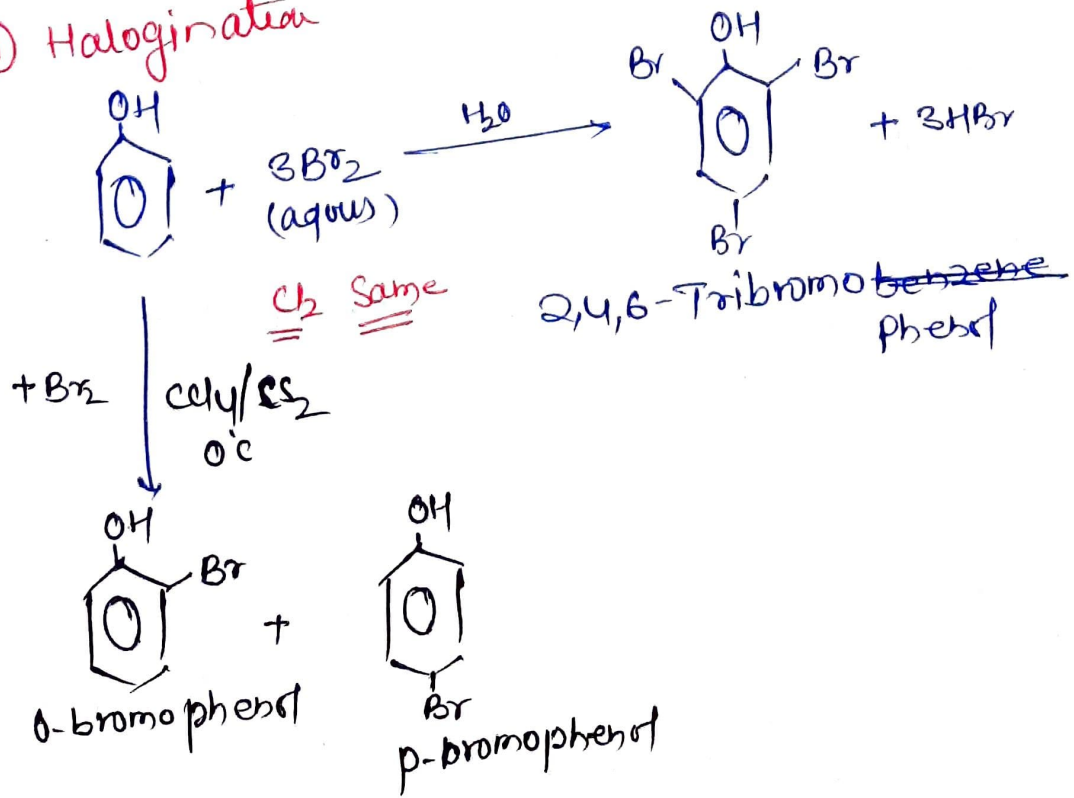 ) Halogination
OH
+ 3Br2
(aqous)
H2O
OH
Br Br
Br
+ 3HBr
Cl2 Same
2,4,6-Tribromobenzene
Phenol
+Br2
CCl4/CS2
0°C
OH
Br
+
OH
Br
o-bromophenol
p-bromophenol